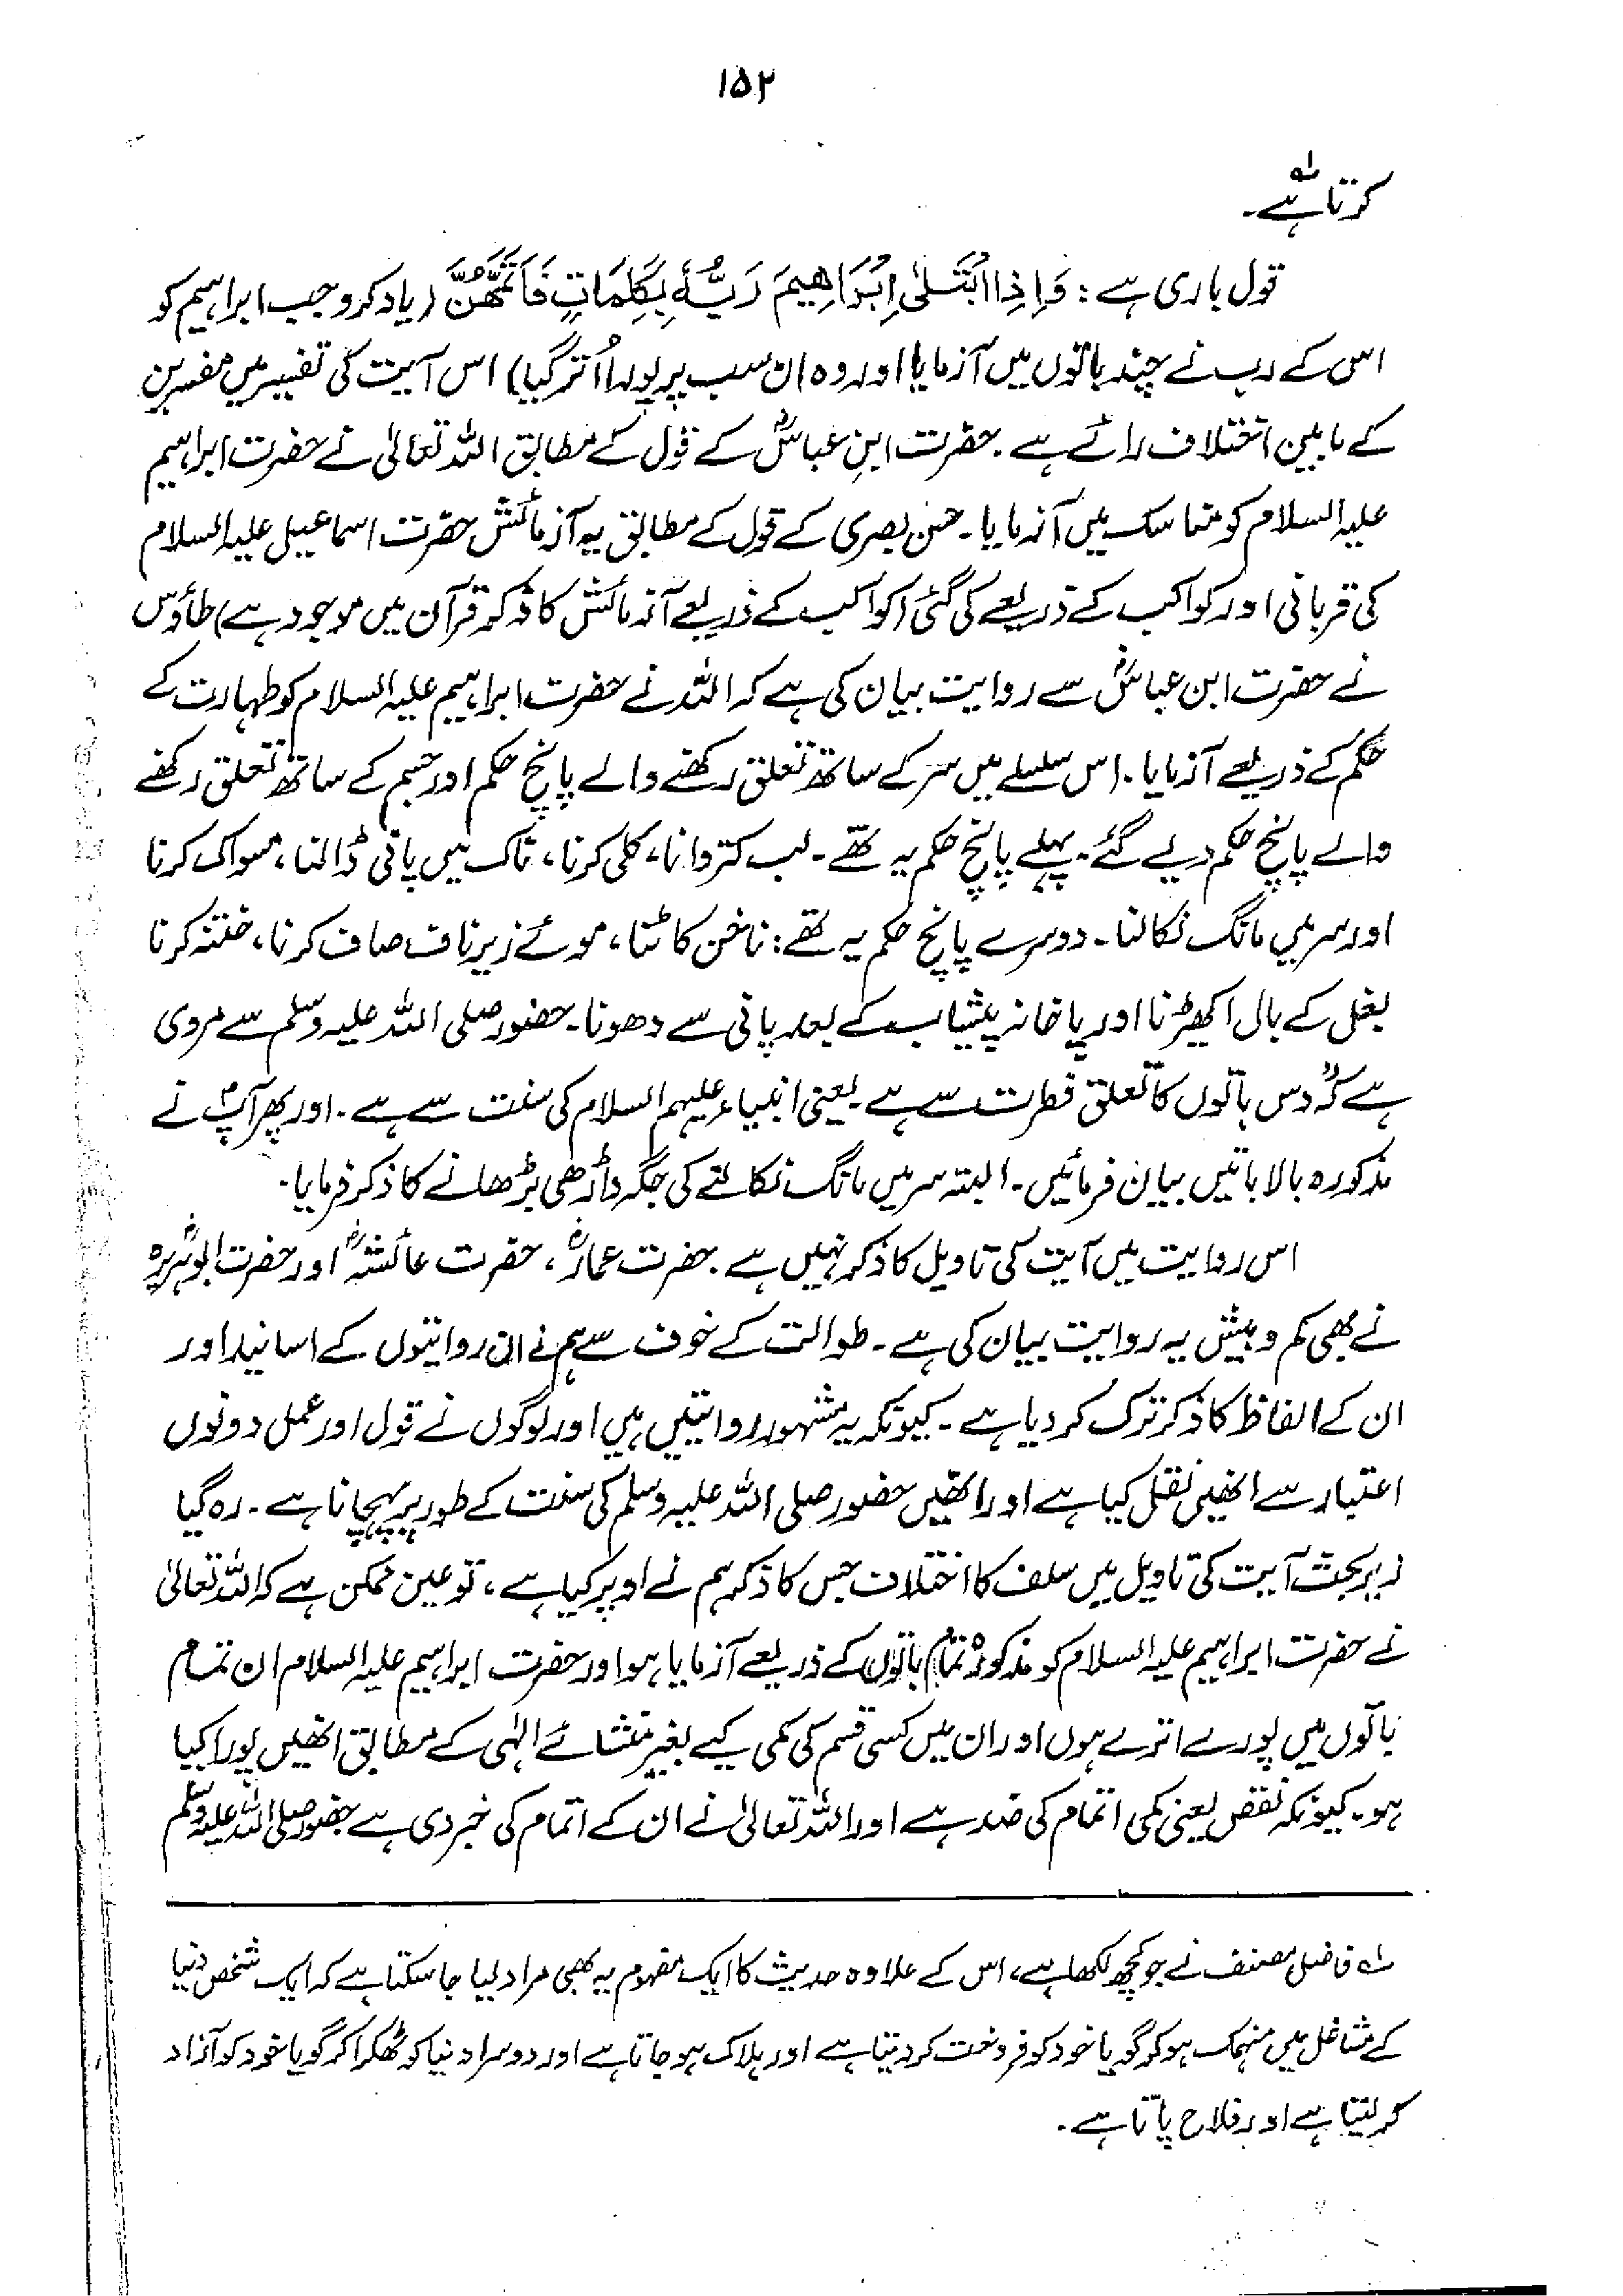 ۱۵۲
کرتا ہے۔ ؎۱
قول باری ہے: وَاِذِابْتَلٰی اِبْرَاهِیمَ رَبُّهٗ بِکَلِمَاتٍ فَاَتَمَّهُنَّ (یاد کرو جب ابراہیم کو
اس کے رب نے چند باتوں میں آزمایا اور وہ ان سب پر پورا اُتر گیا) اس آیت کی تفسیر میں مفسرین
کے مابین اختلاف رائے ہے۔ حضرت ابنِ عباسؓ کے قول کے مطابق اللہ تعالیٰ نے حضرت ابراہیم
علیہ السلام کو مناسک میں آزمایا۔ حسن بصری کے قول کے مطابق یہ آزمائش حضرت اسماعیل علیہ السلام
کی قربانی اور کواکب کے ذریعے کی گئی (کواکب کے ذریعے آزمائش کا ذکر قرآن میں موجود ہے) طاؤس
نے حضرت ابن عباسؓ سے روایت بیان کی ہے کہ اللہ نے حضرت ابراہیم علیہ السلام کو طہارت کے
حکم کے ذریعے آزمایا۔ اس سلسلے میں سر کے ساتھ تعلق رکھنے والے پانچ حکم اور جسم کے ساتھ تعلق رکھنے
والے پانچ حکم دیے گئے۔ پہلے پانچ حکم یہ تھے۔ لب کتروانا، کلی کرنا، ناک میں پانی ڈالنا، مسواک کرنا
اور سر میں مانگ نکالنا۔ دوسرے پانچ حکم یہ تھے: ناخن کاٹنا، موئے زیر ناف صاف کرنا، ختنہ کرنا
بغل کے بال اکھیڑنا اور پاخانہ پیشاب کے بعد پانی سے دھونا۔ حضور صلی اللہ علیہ وسلم سے مروی
ہے کہ "دس باتوں کا تعلق فطرت سے ہے یعنی انبیاء علیہم السلام کی سنت سے ہے۔ اور پھر آپؐ نے
مذکورہ بالا باتیں بیان فرمائیں۔ البتہ سر میں مانگ نکالنے کی جگہ داڑھی بڑھانے کا ذکر فرمایا۔
اس روایت میں آیت کی تاویل کا ذکر نہیں ہے۔ حضرت عمارؓ، حضرت عائشہؓ اور حضرت ابوہریرہؓ
نے بھی کم و بیش یہ روایت بیان کی ہے۔ طوالت کے خوف سے ہم نے ان روایتوں کے اسانید اور
ان کے الفاظ کا ذکر ترک کر دیا ہے۔ کیونکہ یہ مشہور روایتیں ہیں اور لوگوں نے قول اور عمل دونوں
اعتبار سے انھیں نقل کیا ہے اور انھیں حضور صلی اللہ علیہ وسلم کی سنت کے طور پر پہچانا ہے۔ رہ گیا
زیر بحث آیت کی تاویل میں سلف کا اختلاف جس کا ذکر ہم نے اوپر کیا ہے، تو عین ممکن ہے کہ اللہ تعالیٰ
نے حضرت ابراہیم علیہ السلام کو مذکورہ تمام باتوں کے ذریعے آزمایا ہو اور حضرت ابراہیم علیہ السلام ان تمام
باتوں میں پورے اترے ہوں اور ان میں کسی قسم کی کمی کیے بغیر منشائے الٰہی کے مطابق انھیں پورا کیا
ہو۔ کیونکہ نقص یعنی کمی اتمام کی ضد ہے اور اللہ تعالیٰ نے ان کے اتمام کی خبر دی ہے حضور صلی اللہ علیہ وسلم
؎۱ فاضل مصنف نے جو کچھ لکھا ہے، اس کے علاوہ حدیث کا ایک مفہوم یہ بھی مراد لیا جا سکتا ہے کہ ایک شخص دنیا
کے مشاغل میں منہمک ہو کر گویا خود کو فروخت کر دیتا ہے اور ہلاک ہو جاتا ہے اور دوسرا دنیا کو ٹھکرا کر گویا خود کو آزاد
کر لیتا ہے اور فلاح پاتا ہے۔